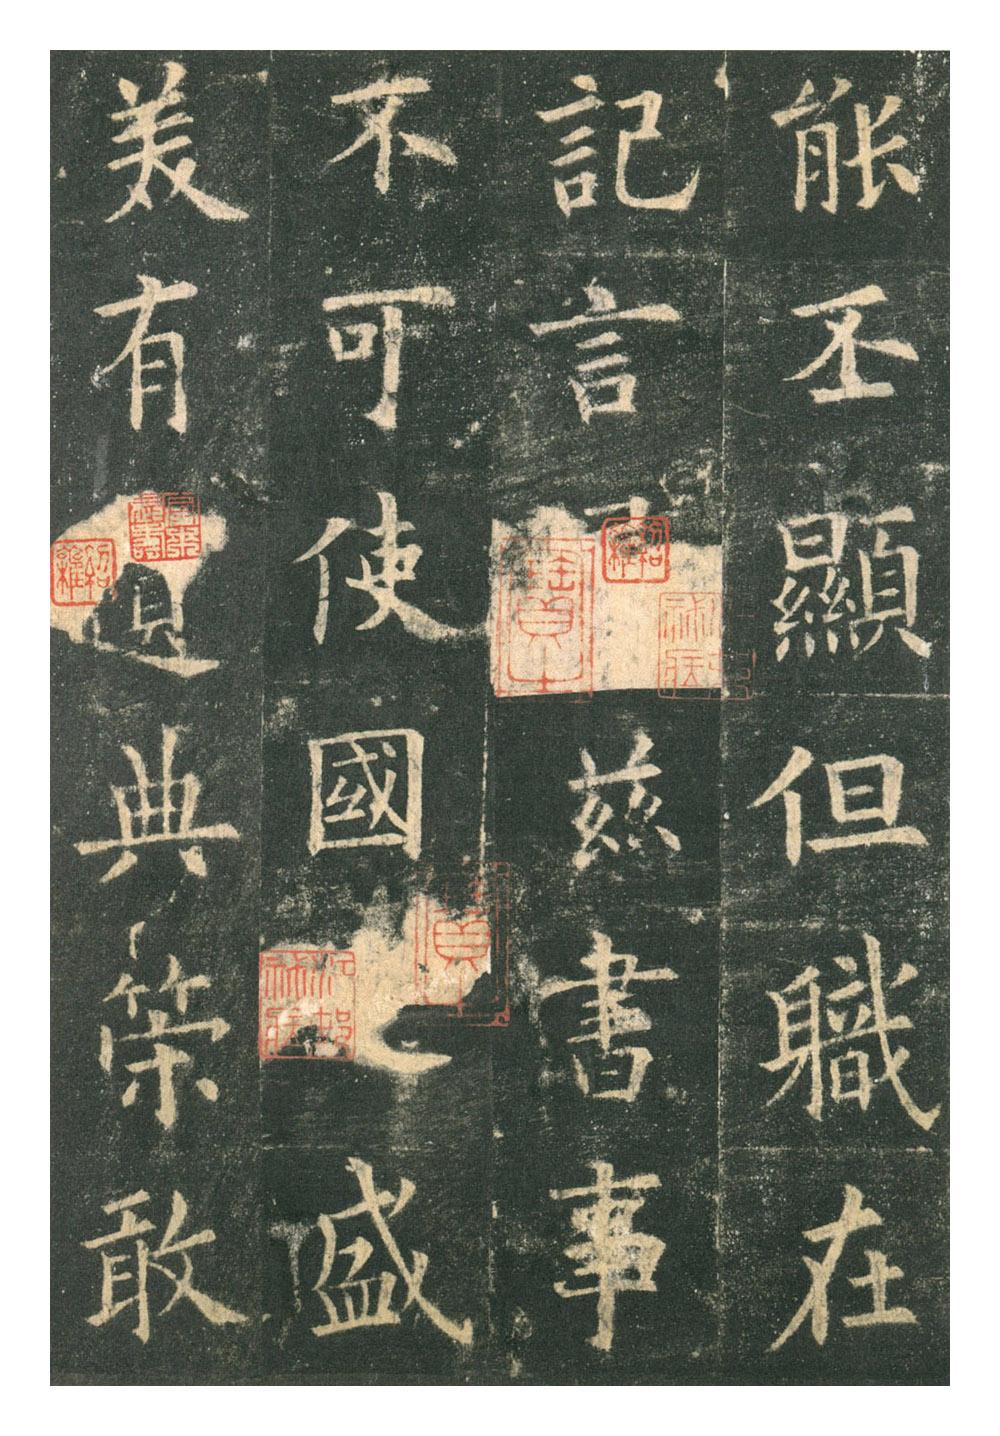 能丕顯但職在
記言兹書事
不可使國之盛
美有遺典策敢